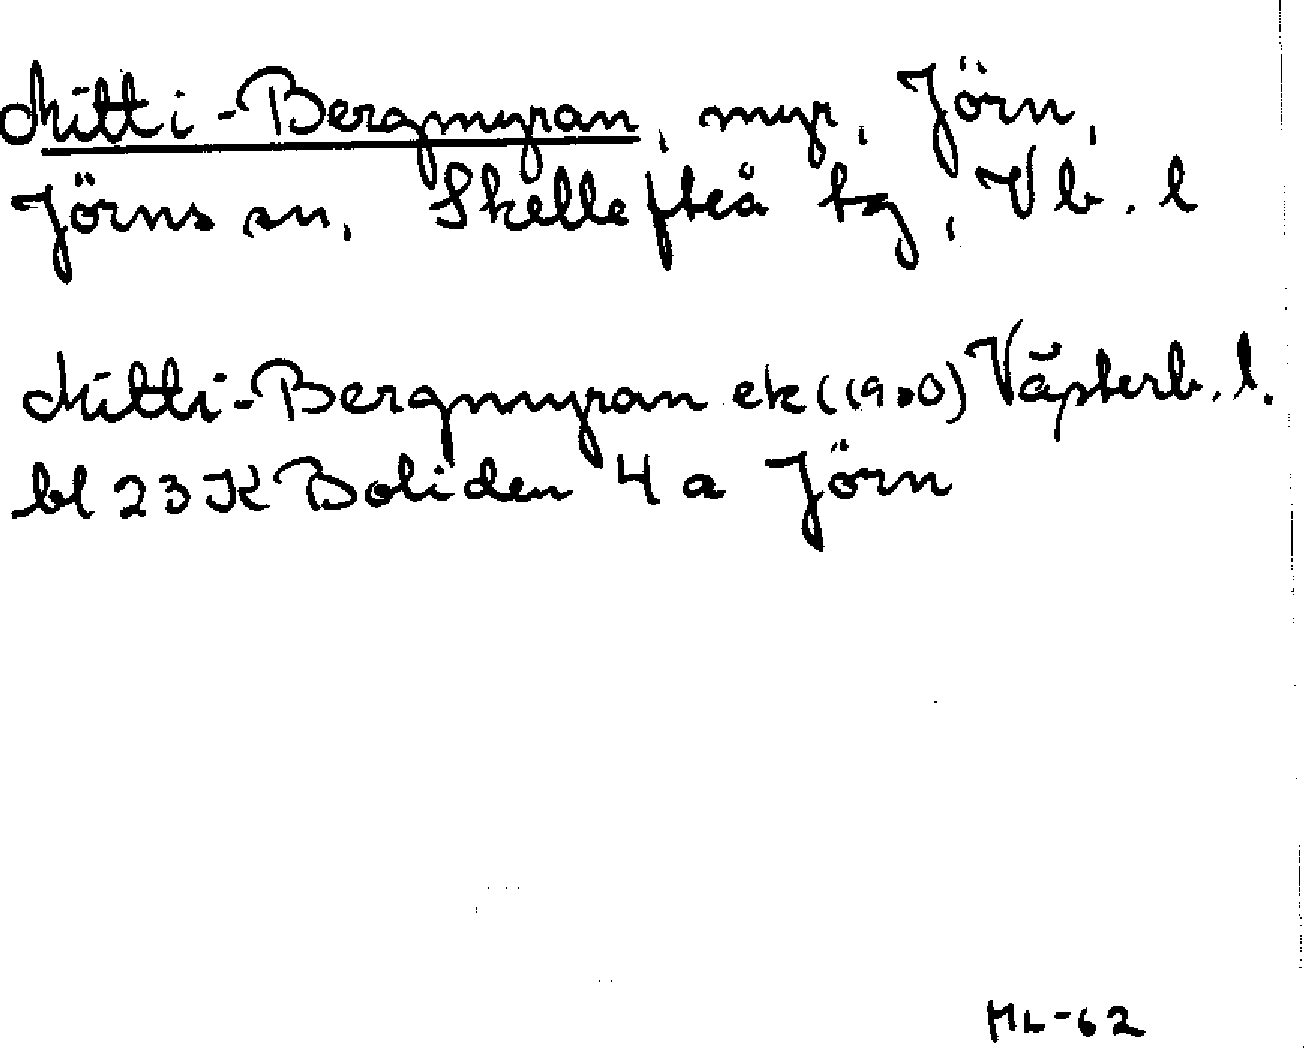 Mitti-Bergmyran, myr, Jörn,
Jörns sn, Skellefteå tg, Vb. l
Mitti-Bergmyran ek (1960) Västerb. l.
bl 23 K Boliden 4 a Jörn
ML-62